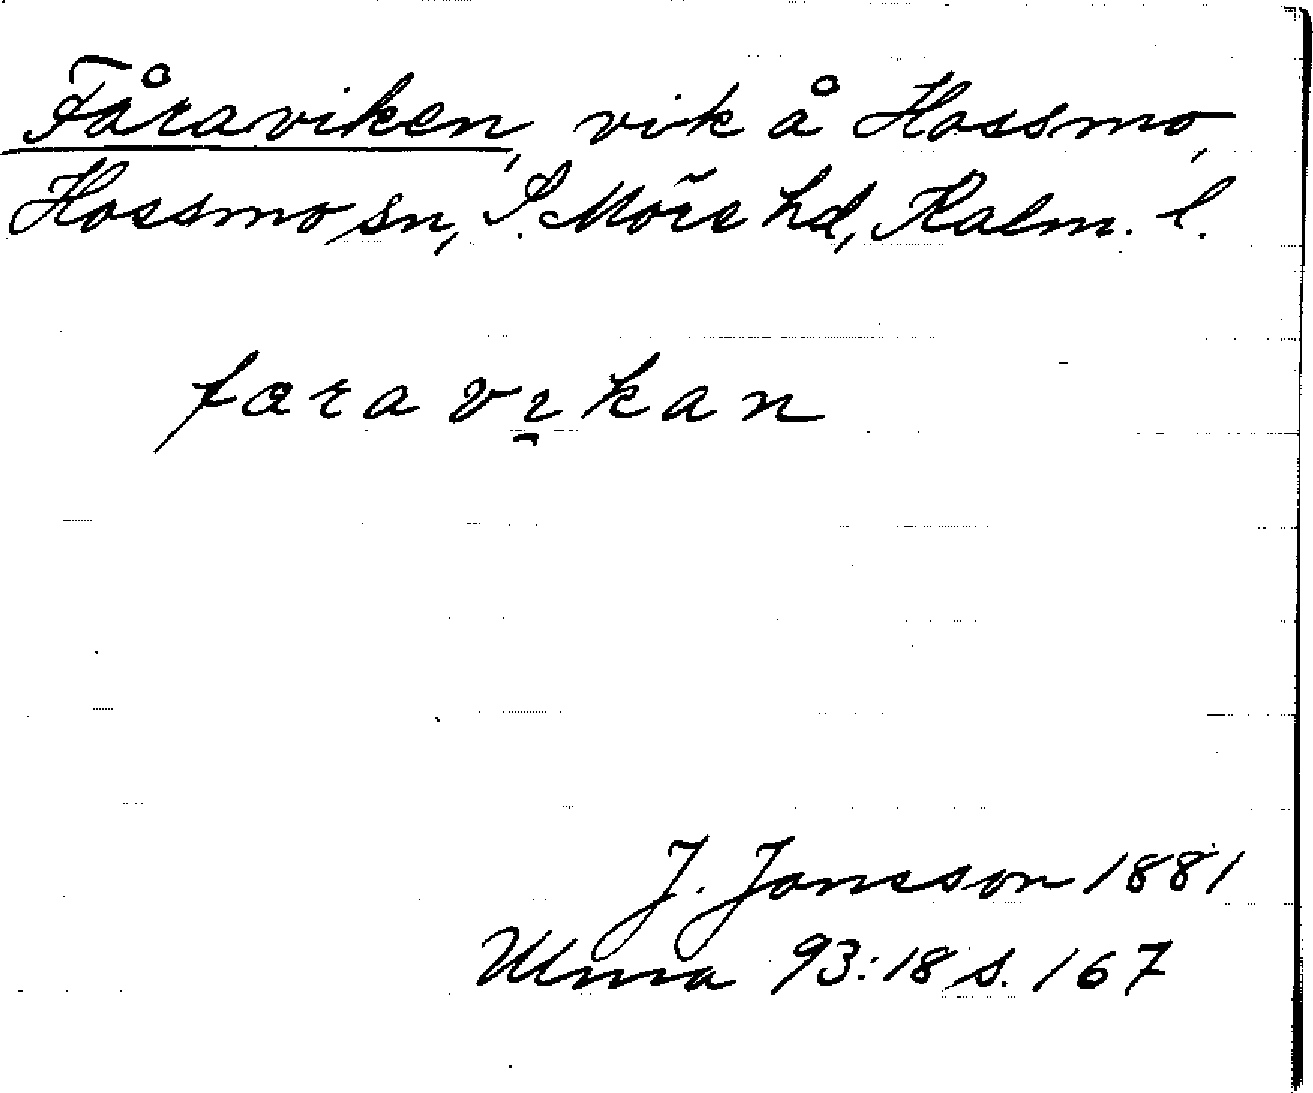 Fåraviken, vik å Hossmo,
Hossmo sn, S. Möre hd, Kalm. l.
færa vɩkan
J. Jonsson 1881
Ulma 93:18 s. 167